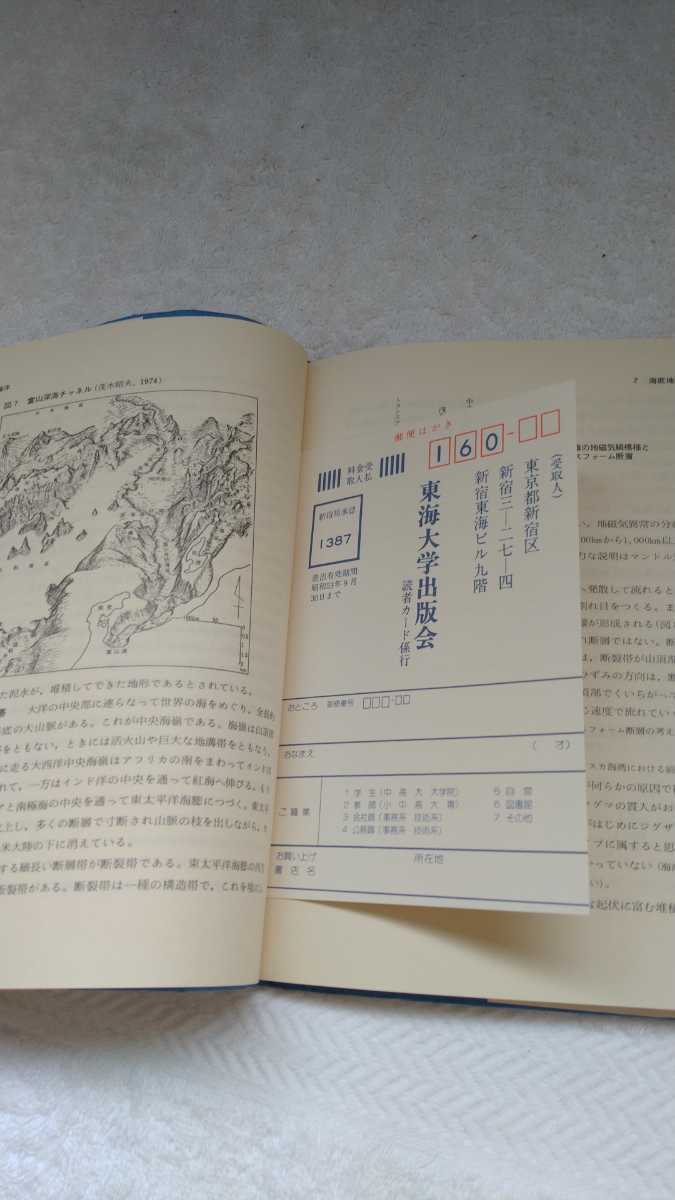 海洋
図7 富山深海チャネル(茂木昭夫, 1974)
た泥水が，堆積してできた地形であるとされている。
大洋の中央部に連らなって世界の海をめぐり，全長約
底の大山脈がある。これが中央海嶺である。海嶺は山頂
をともない，ときには活火山や巨大な地溝帯をともなう。
に走る大西洋中央海嶺はアフリカの南をまわってインド
れて，一方はインド洋の中央を通って紅海へ伸びる。
と南極海の中央を通って東太平洋海膨につづく。東太
上し，多くの断層で寸断され山脈の枝を出しながら，
米大陸の下に消えている。
する細長い断層帯が断裂帯である。東太平洋海膨の
断裂帯がある。断裂帯は一種の構造帯で，これを境に
郵便はがき
160-
(受取人)
東京都新宿区
新宿三―二七―四
新宿東海ビル九階
東海大学出版会
読者カード係行
料金受
取人払
新宿局承認
1387
差出有効期間
昭和53年9月
30日まで
おところ 郵便番号
おなまえ ( 才)
ご職業
1 学 生 (中 高 大 大学院)
2 教 師 (小 中 高 大 専)
3 会社員 (事務系 技術系)
4 公務員 (事務系 技術系)
5 自 営
6 図書館
7 その他
お買い上げ
書 店 名
所在地
2 海底地
の地磁気縞模様と
スフォーム断層
い。地磁気異常の分
00kmから1,000km以
力な説明はマントル
へ発散して流れると
割れ目をつくる。ま
が形成される(図
れ断層ではない。
は，断裂帯が山頂
ずみの方向は，
頂部でくいちがっ
速度で流れてい
フォーム断層の考え
スカ海湾における
が何らかの原因で
グマの貫入がお
がはじめにジグザ
プに属すると思
かっていない (海
い)。
な起伏に富む堆積